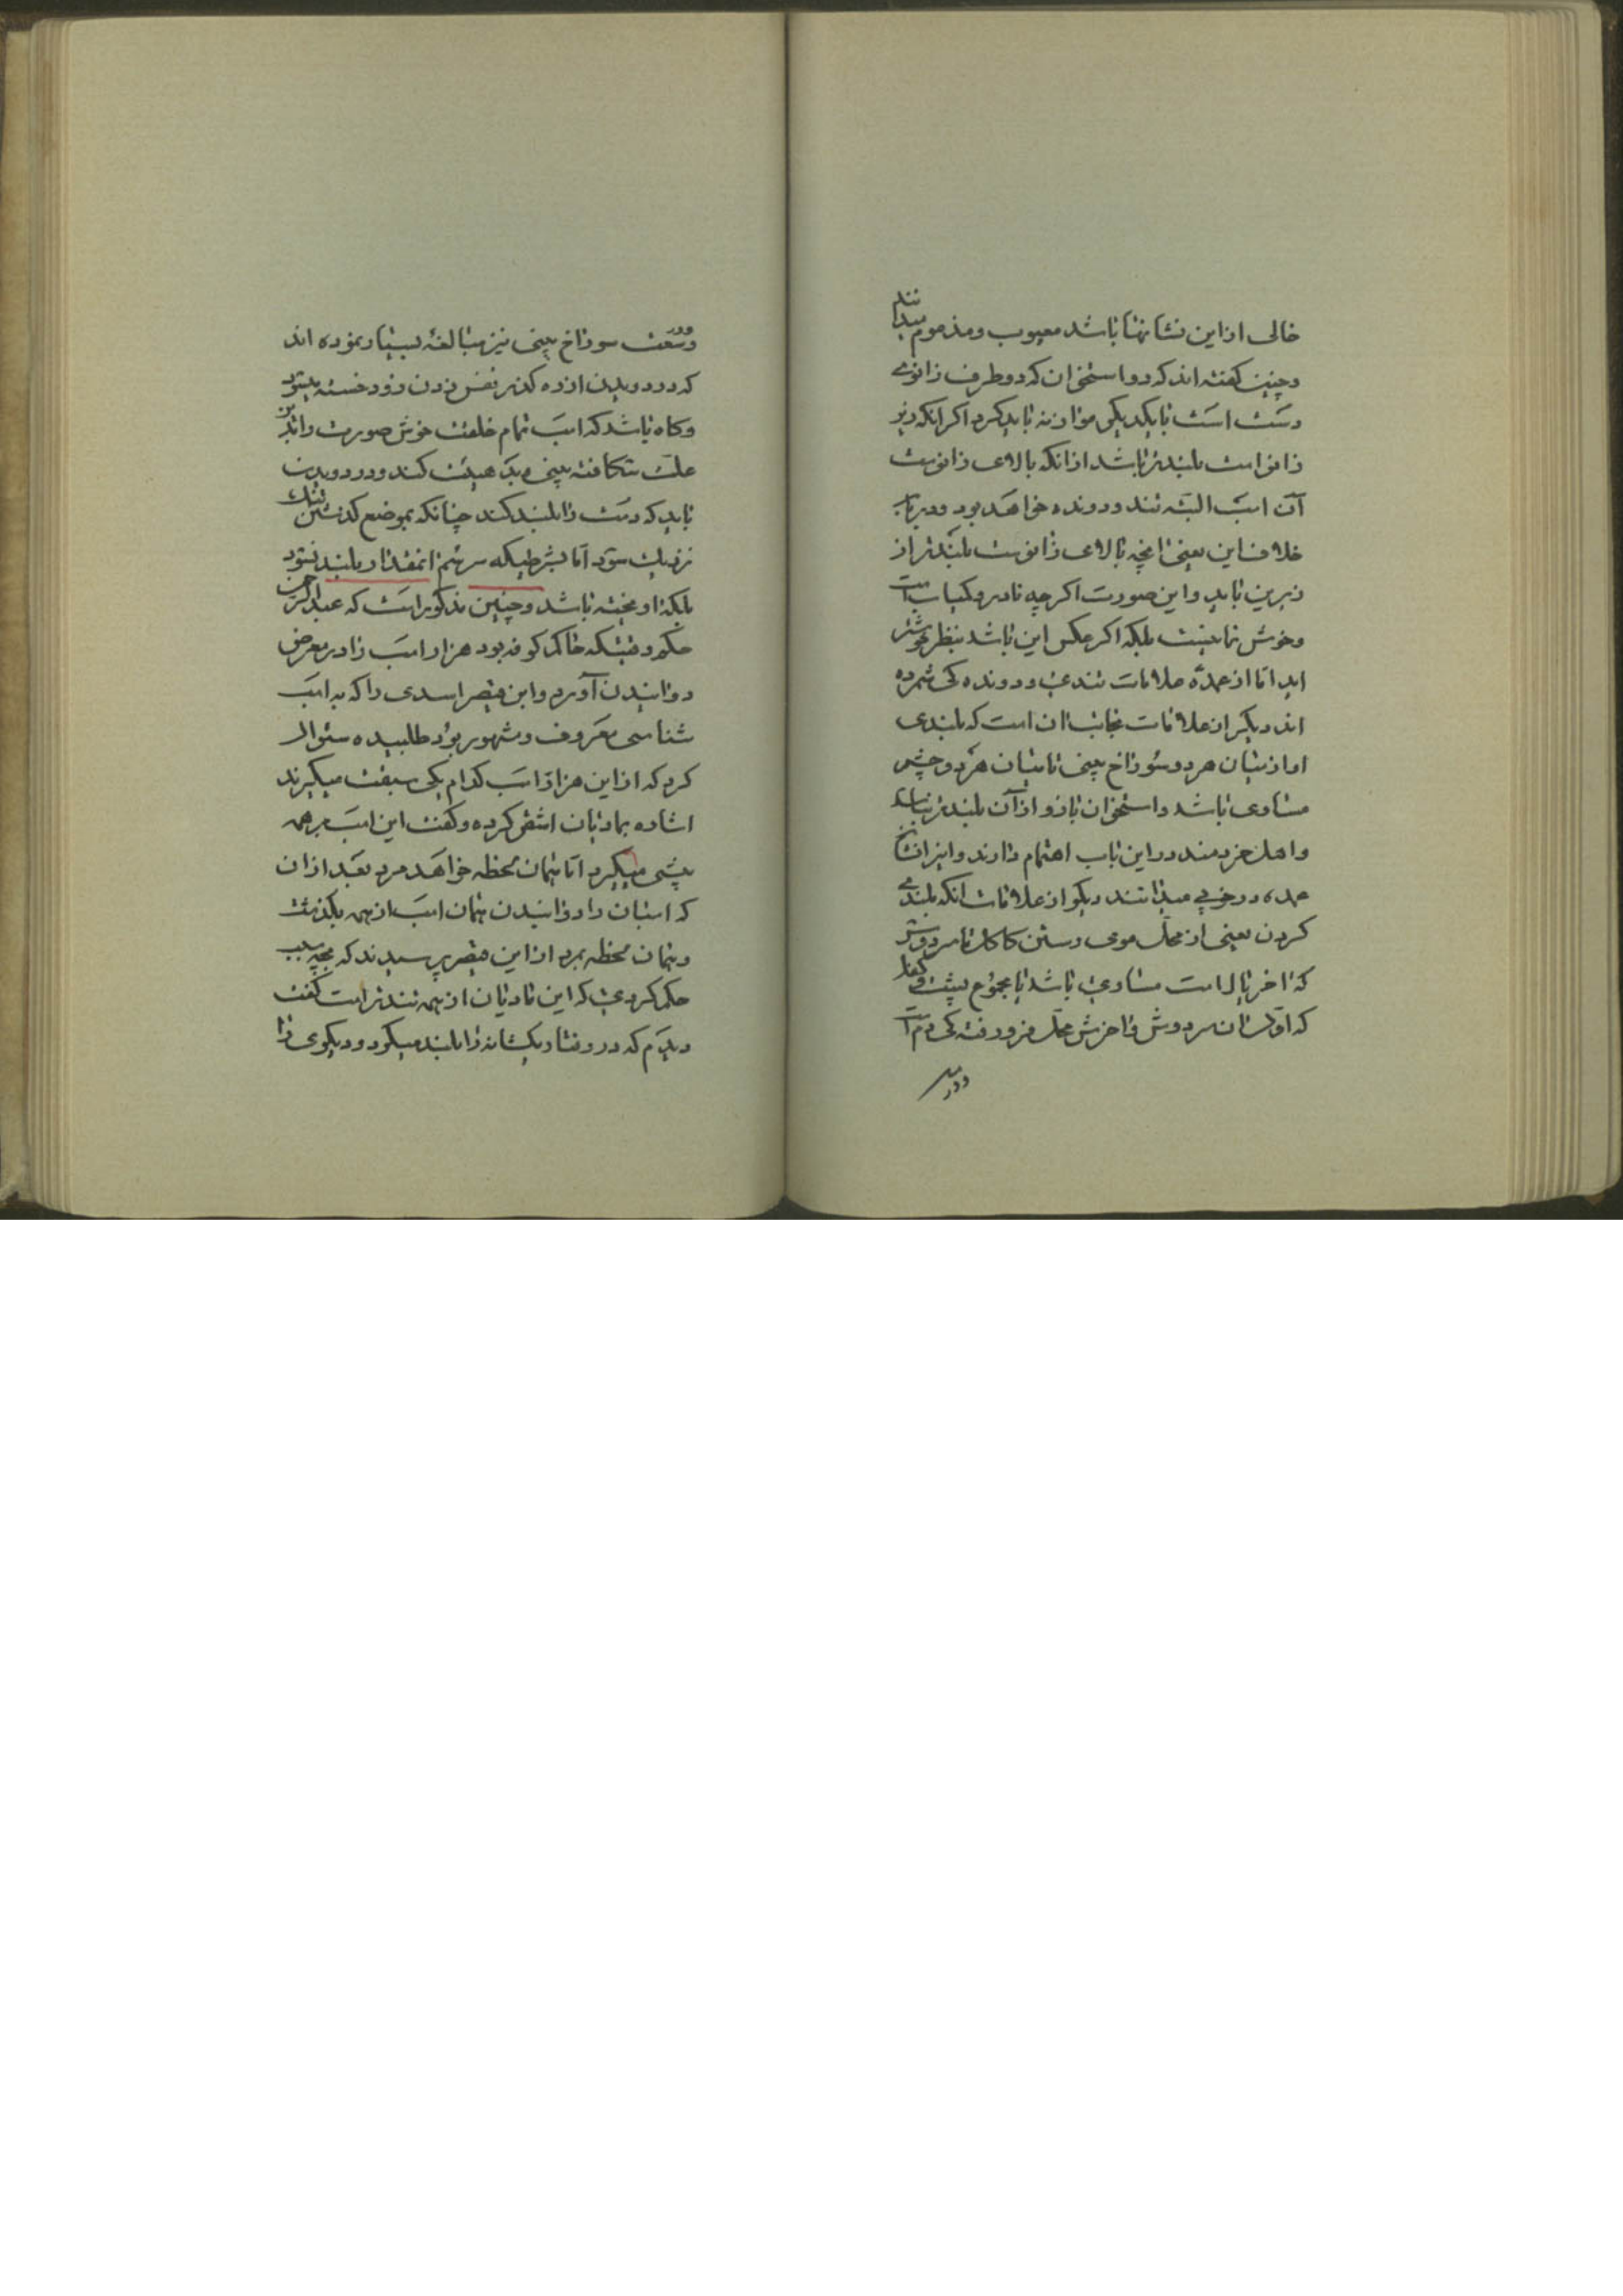 خالی از این نشانها باشد معیوب و مذموم میدانند
و چنین گفته‌اند که دو استخوان که دو طرف زانوی
دست است با یکدیگر موازنه باید کرد اگر آنکه زیر
زانو است بلندتر باشد از آنکه بالای زانوست
آن اسب البته تند و دونده خواهد بود و
خلاف این یعنی آنچه بالای زانوست بلندتر از
زیرین باید و این صورت اگرچه نادر و کمیاب است
و خوش نما نیست بلکه اگر عکس این باشد بنظر خوشتر
آید اما از عمده علامات تندی و دونده‌کی شمرده
اند دیگر از علامات نجابت آن است که بلندی
او از میان هر دو سوراخ بینی تا میان هر دو چشم
مساوی باشد و استخوان بازو از آن بلندتر نباشد
و اهل خردمند در این باب اهتمام دارند و این را نشان
عمده در خوبی میدانند دیگر از علامات آنکه بلندی
کردن یعنی از محل موی رستن کاکل تا سر دوش
که آخر یال است مساوی باشد با مجموع پشت و کفل
که اول آن سر دوش و آخرش محل فرو رفته‌کی دم است
و در
و در وسعت سوراخ بینی نیز مبالغه بسیار نموده‌اند
که در دویدن از ره گذر نفس زدن زود خسته میشود
و گاه باشد که اسب تمام خلقت خوش صورت را این
علت شکافته بینی بد هیئت کند و در دویدن
باید که دست را بلند کند چنانکه بموضع گذشتن تنگ
نزدیک شود اما بشرطیکه سر سم آنمقدار بلند نشود
بلکه آویخته باشد و چنین مذکور است که عبدالرحمن
حکم وقتیکه حاکم کوفه بود هزار اسب را در معرض
دوانیدن آورد و ابن قیصر اسدی را که به اسب
شناسی معروف و مشهور بود طلبیده سئوال
کرد که از این هزار اسب کدام یکی سبقت میگیرند
اشاره بمادیان اشقر کرده و گفت این اسب بر همه
پیشی میگیرد اما همان لحظه خواهد مرد بعد از آن
که اسبان را دوانیدن همان اسب از همه بگذشت
و همان لحظه بمرد از ابن قیصر پرسیدند که بچه سبب
حکم کردی که این مادیان از همه تندتر است گفت
دیدم که در رفتار یکشانه را بلند میکرد و دیگری را